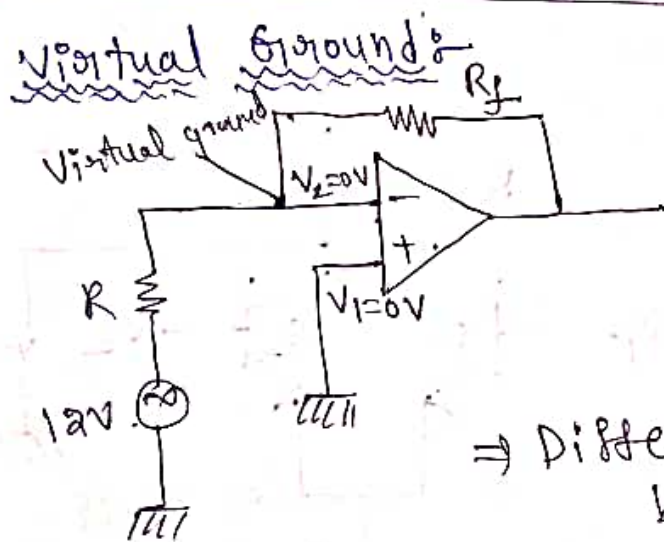 Virtual Ground:
Rf
Virtual ground
V2=0V
-
+
R
V1=0V
12V
⇒ Diffe